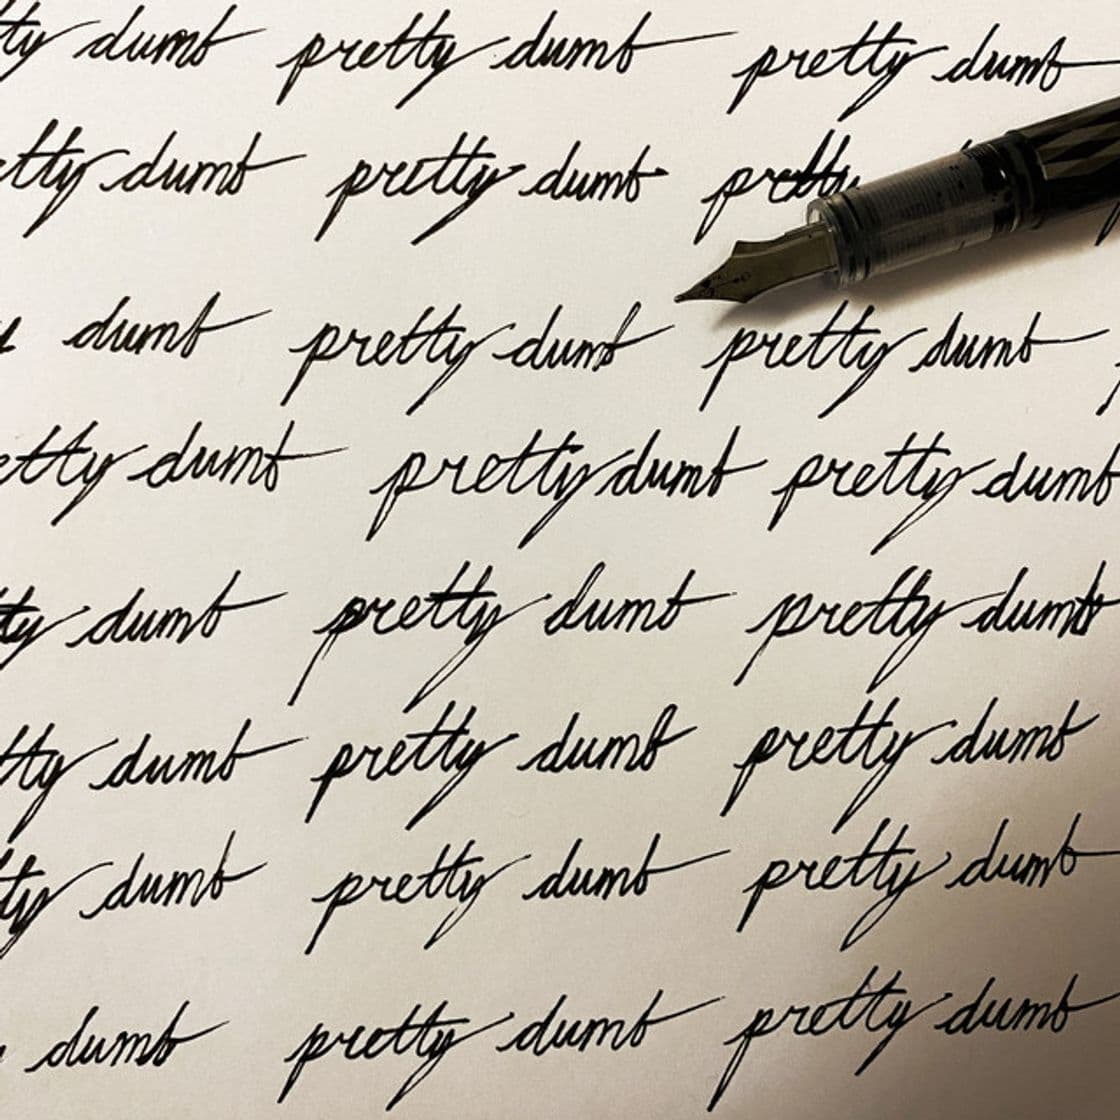 tty dumb pretty dumb pretty dumb
etty dumb pretty dumb pretty
dumb pretty dumb pretty dumb
etty dumb pretty dumb pretty dumb
tty dumb pretty dumb pretty dumb
tty dumb pretty dumb pretty dumb
ty dumb pretty dumb pretty dumb
dumb pretty dumb pretty dumb